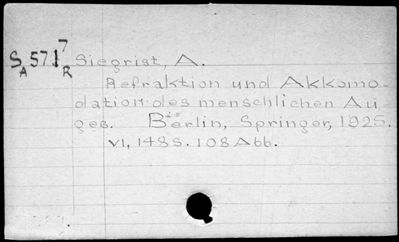 SA 571 7R Siegrist, A.
Refraktion und Akkomo-
dation des menschlichen Au
ges. Berlin, Springer, 1925.
VI, 148 S. 108 Abb.